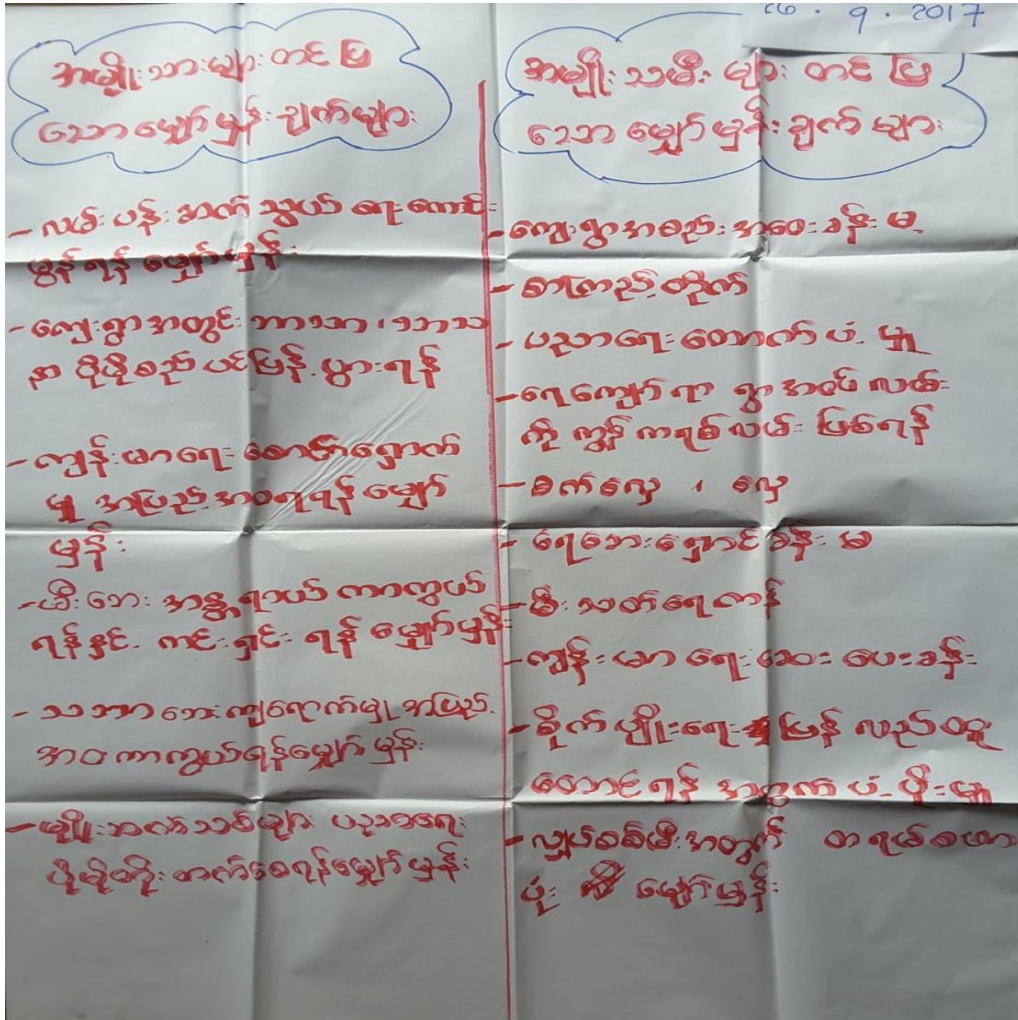 ၁၆ . 9 . 2017
အမျိုးသားများ တင်ပြ
သော မျှော်မှန်းချက်များ
- လမ်းပန်းဆက်သွယ်ရေးကောင်း
မွန်ရန် မျှော်မှန်း
- ကျေးရွာအတွင်း ဘာသာ၊ သာသ
နာ ပိုမိုစည်ပင်ပြန့်ပွားရန်
- ကျန်းမာရေး စောင့်ရှောက်
မှု အပြည့်အဝရရန် မျှော်
မှန်း
- မီးဘေး အန္တရာယ် ကာကွယ်
ရန်နှင့် ကင်းရှင်းရန် မျှော်မှန်း
- သဘာဝဘေးကျရောက်မှု အပြည့်
အဝ ကာကွယ်ရန်မျှော်မှန်း
- မျိုးဆက်သစ်များ ပညာရေး
ပိုမိုတိုးတက်စေရန်မျှော်မှန်း
အမျိုးသမီးများ တင်ပြ
သော မျှော်မှန်းချက်များ
- ကျေးရွာအစည်းအဝေးခန်းမ
- စာကြည့်တိုက်
- ပညာရေးထောက်ပံ့မှု
- ရေကျော် ရာ ရွာအဝင်လမ်း
ကို ကွန်ကရစ်လမ်း ဖြစ်ရန်
- စက်လှေ ၊ လှေ
- ရေဘေးရှောင်ခန်းမ
- မီးသတ်ရေကန်
- ကျန်းမာရေးဆေးပေးခန်း
- စိုက်ပျိုးရေး ပြန်လည်ထူ
ထောင်ရန် အတွက် ပံ့ပိုးမှု
- လျှပ်စစ်မီးအတွက် ထရန်စဖော
မျှော်မှန်း